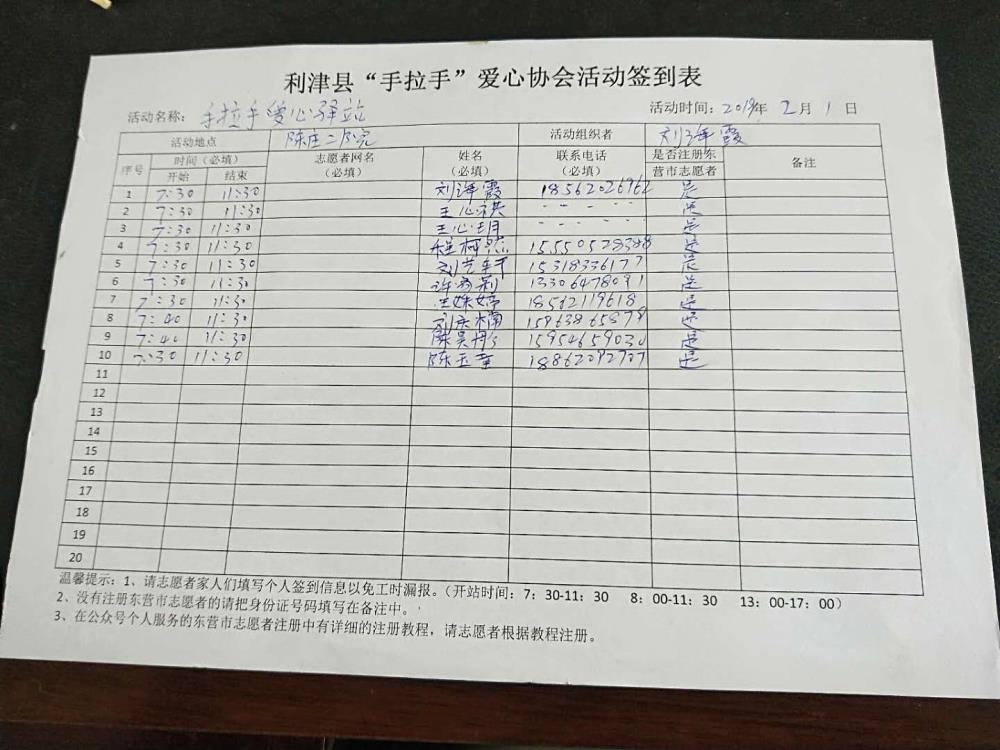 利津县“手拉手”爱心协会活动签到表
活动名称：手拉手爱心驿站 活动时间：2019年 2月 1日
活动地点 陈庄二院 活动组织者 刘海霞
序号 时间（必填） 志愿者网名（必填） 姓名（必填） 联系电话（必填） 是否注册东营市志愿者 备注
开始 结束
1 7:30 11:30 刘海霞 18562026962 是
2 7:30 11:30 王心祺 - - - - - 是
3 7:30 11:30 王心玥 - - - - - 是
4 7:30 11:30 程柯然 15550528388 是
5 7:30 11:30 刘芸轩 15318336177 是
6 7:30 11:30 13306478091 是
7 7:30 11:30 18562119618 是
8 7:40 11:30 15963865879 是
9 7:40 11:30 陈昊彤 15954659030 是
10 7:30 11:30 陈玉童 18862092707 是
11
12
13
14
15
16
17
18
19
20
温馨提示：1、请志愿者家人们填写个人签到信息以免工时漏报。（开站时间：7：30-11：30 8：00-11：30 13：00-17：00）
2、没有注册东营市志愿者的请把身份证号码填写在备注中。
3、在公众号个人服务的东营市志愿者注册中有详细的注册教程，请志愿者根据教程注册。